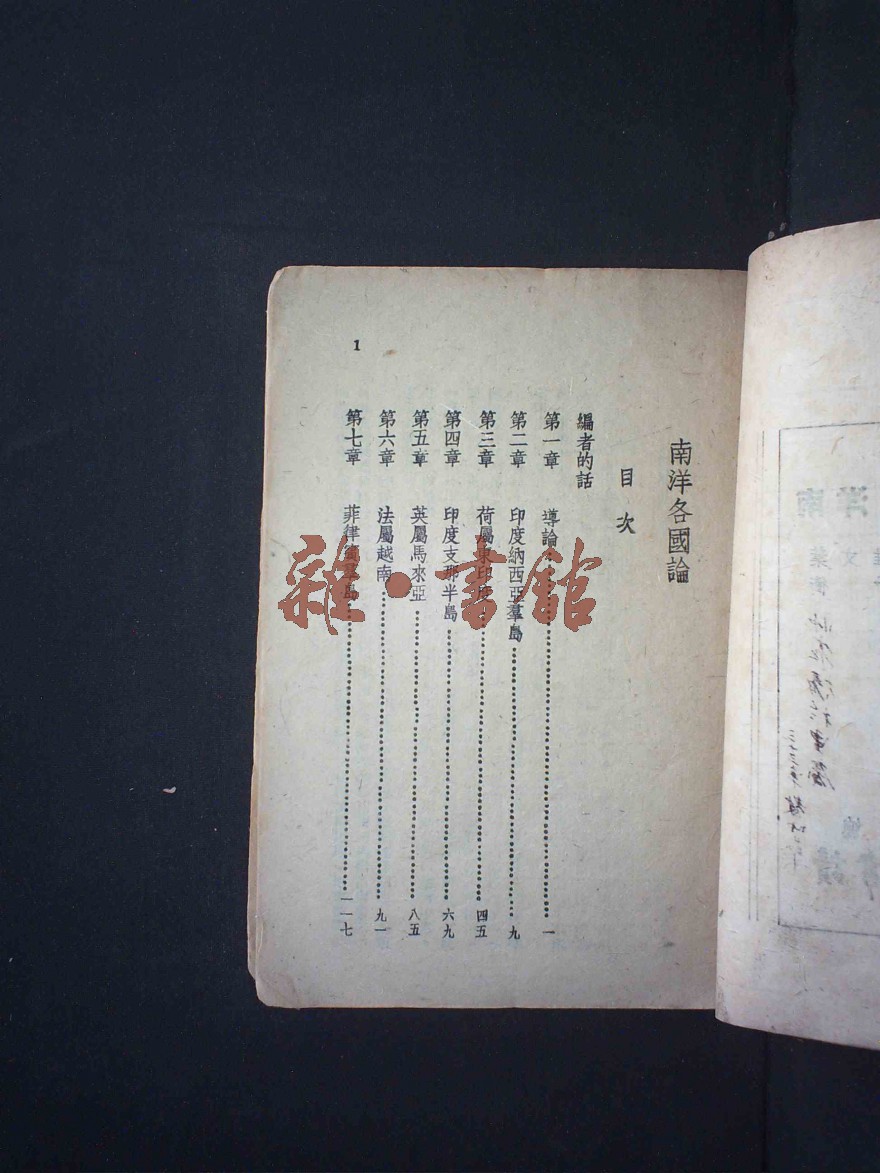 南洋各國論
目次
編者的話
第一章 導論 一
第二章 印度納西亞羣島 九
第三章 荷屬東印度 四五
第四章 印度支那半島 六九
第五章 英屬馬來亞 八五
第六章 法屬越南 九一
第七章 菲律賓羣島 一一七
1
雜·書館